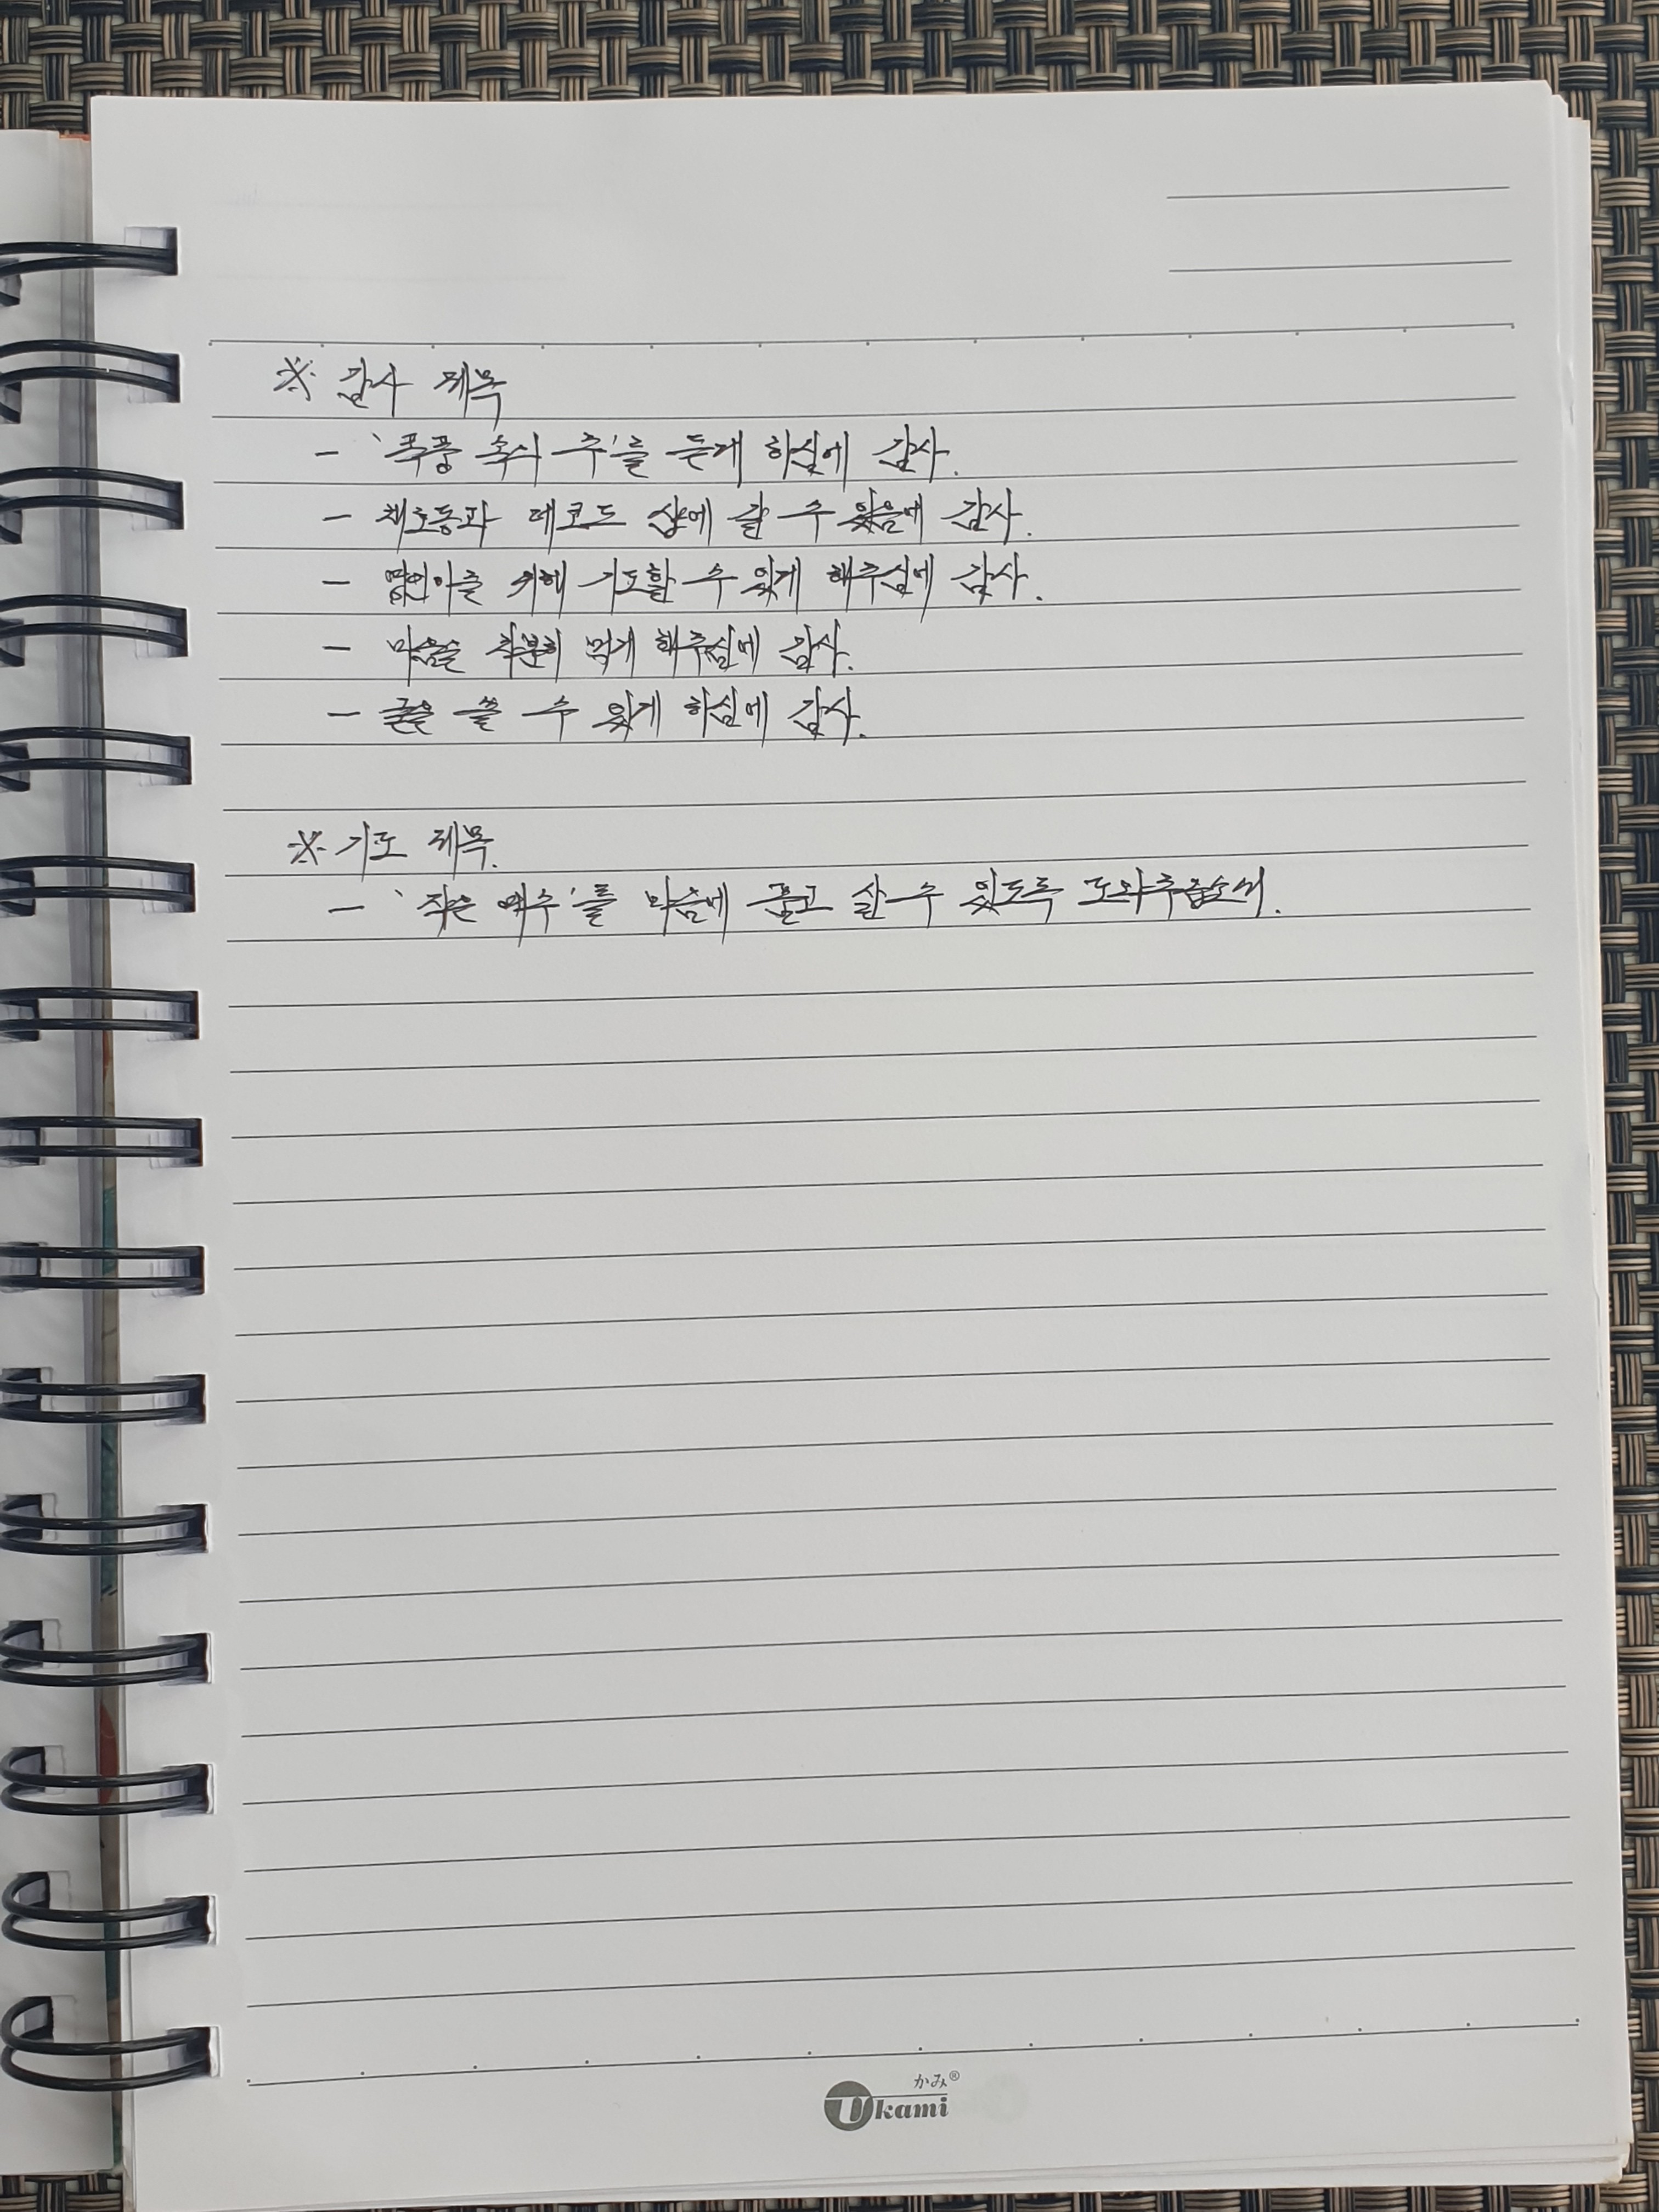 ※ 감사 제목
- '폭풍 속의 주'를 듣게 하심에 감사.
- 채호동과 레코드 샵에 갈 수 있음에 감사.
- 위해 기도할 수 있게 해주심에 감사.
- 마음을 차분히 먹게 해주심에 감사.
- 글을 쓸 수 있게 하심에 감사.
※ 기도 제목.
- '작은 예수'를 마음에 품고 살 수 있도록 도와주옵소서.
かみ®
Ukami